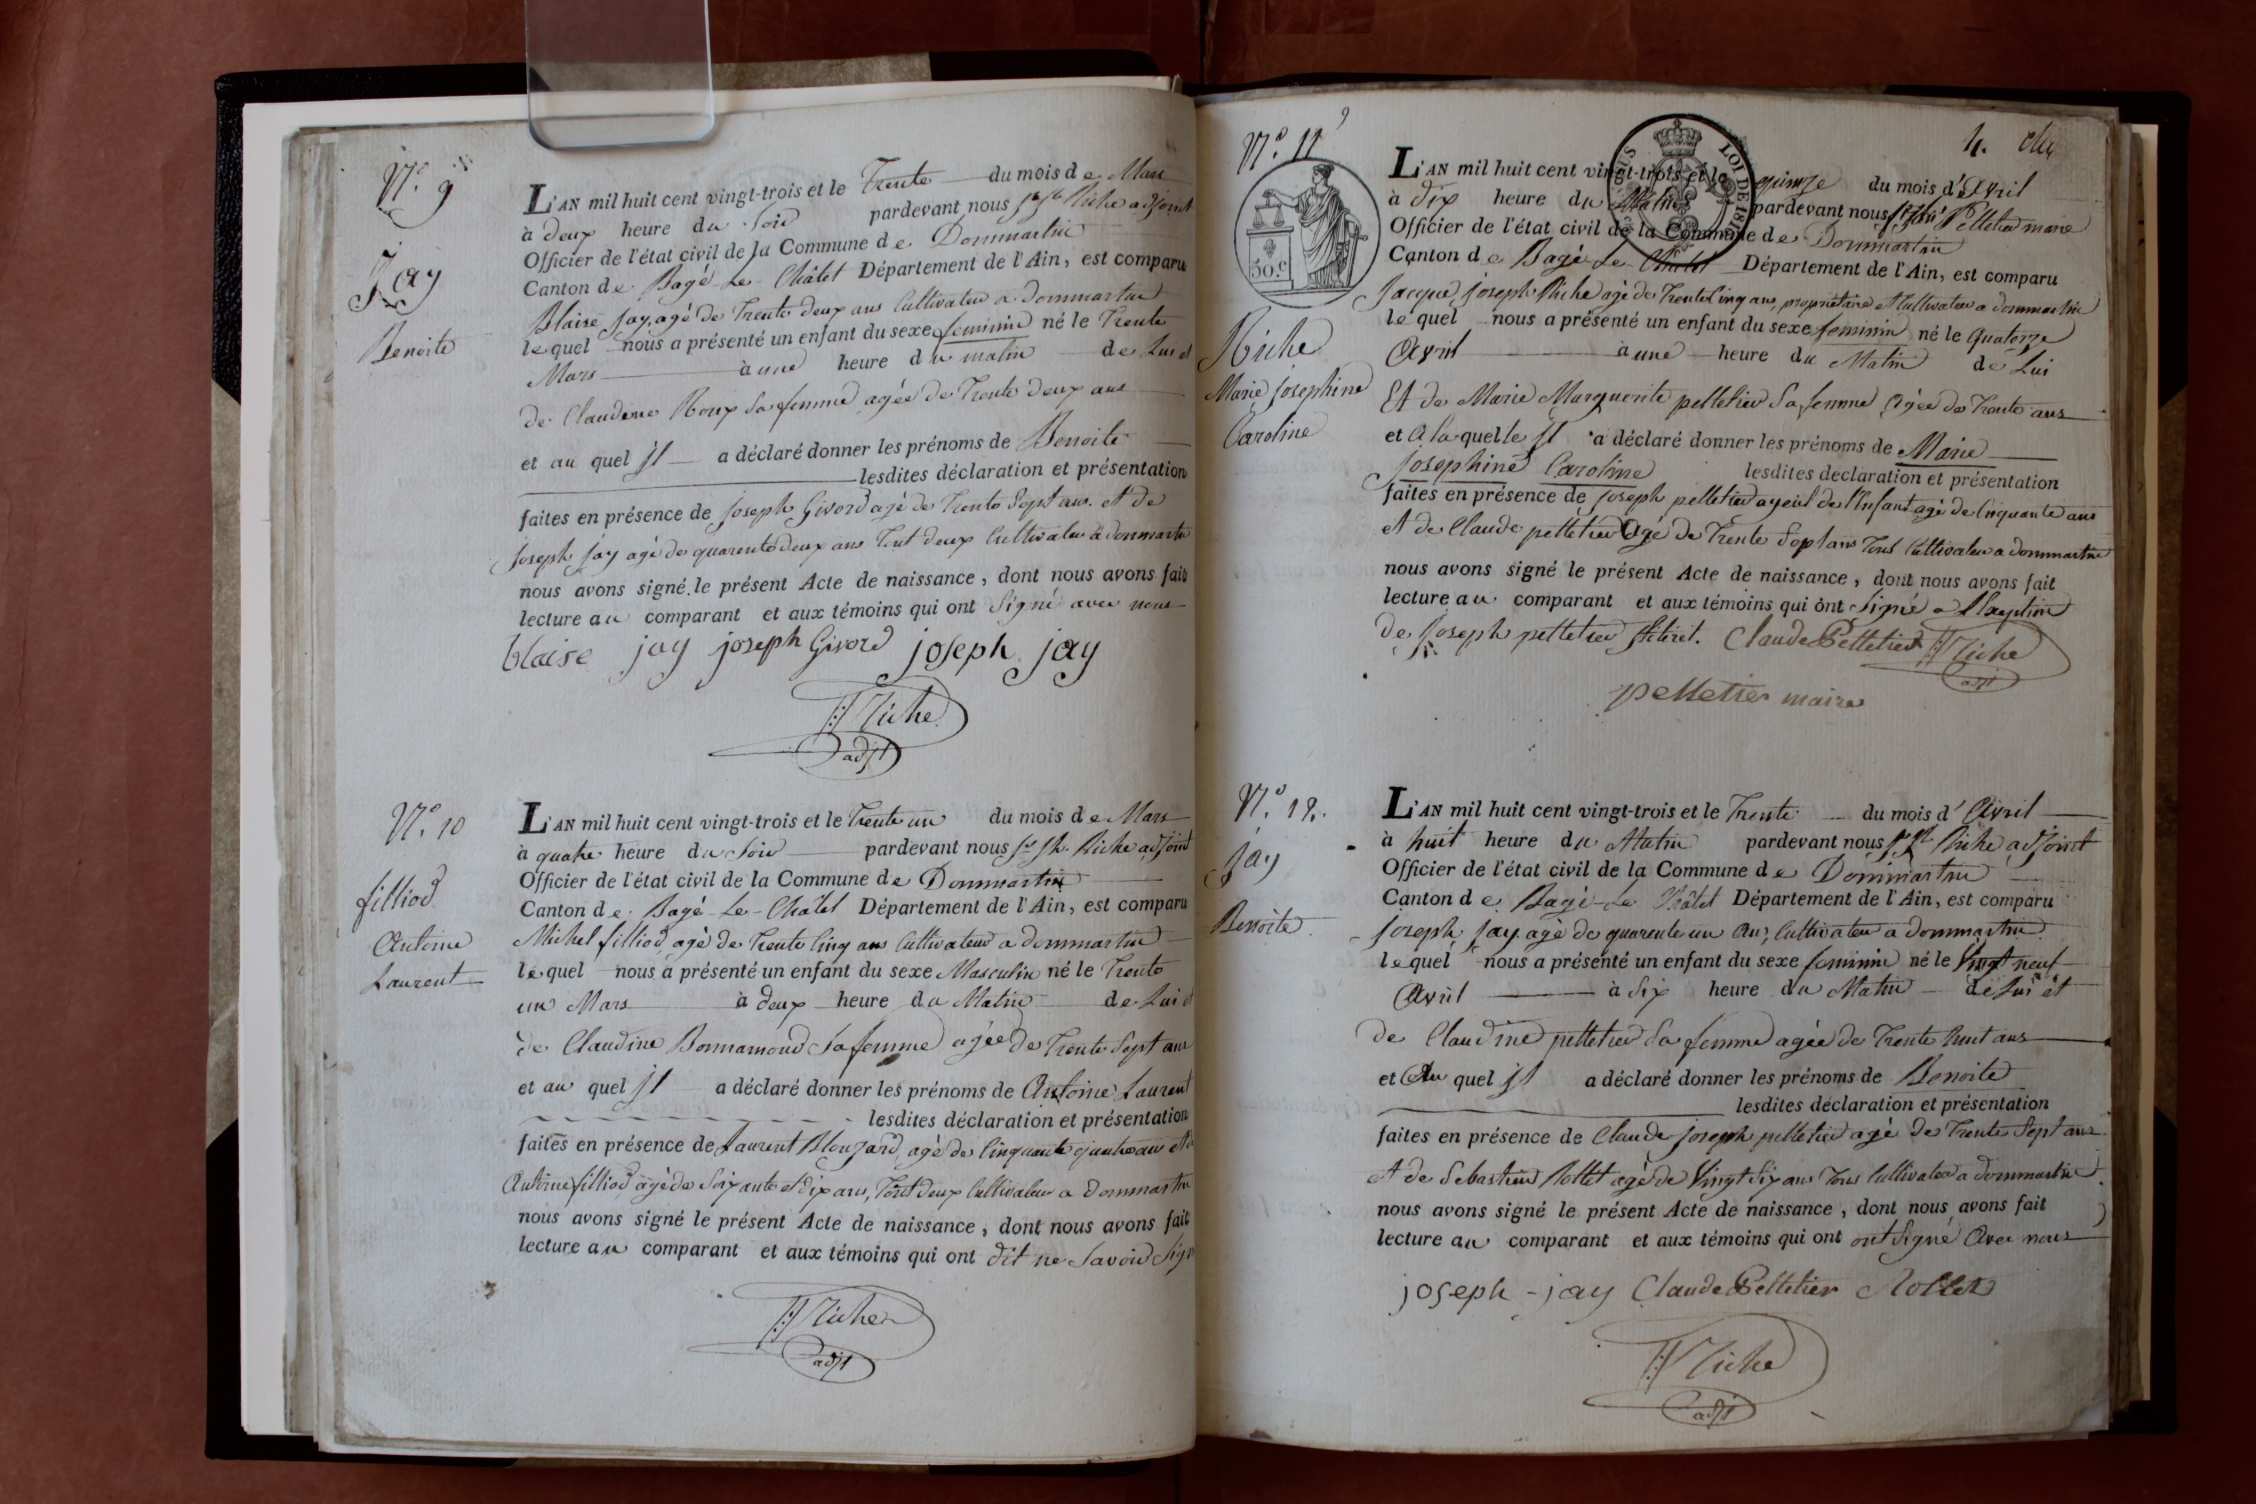 N.o 9
Jay
Benoite
L'AN mil huit cent vingt-trois et le Trente du mois de Mars
à deux heure du Soir pardevant nous Riche adjoint
Officier de l'état civil de la Commune de Dommartin
Canton de Bagé-Le-Châtel Département de l'Ain, est comparu
Blaise Jay, agé de Trente deux ans Cultivateur a dommartin
lequel nous a présenté un enfant du sexe feminin né le Trente
Mars à une heure du matin de Lui et
de Claudine Roux Sa femme agée de Trente deux ans
et au quel jl a déclaré donner les prénoms de Benoite
lesdites déclaration et présentation
faites en présence de joseph Givord agé de Trente Sept ans. et de
joseph jay agé de quarente deux ans Tout deux Cultivateur a dommartin
nous avons signé le présent Acte de naissance, dont nous avons fait
lecture au comparant et aux témoins qui ont Signé avec nous
blaise jay joseph Givord joseph jay
Riche
adjt
N.o 10
filliod
Antoine
Laurent
L'AN mil huit cent vingt-trois et le Trente un du mois de Mars
à quatre heure du Soir pardevant nous Riche adjoint
Officier de l'état civil de la Commune de Dommartin
Canton de Bagé-Le-Chatel Département de l'Ain, est comparu
Michel filliod, agé de Trente Cinq ans Cultivateur a dommartin
lequel nous a présenté un enfant du sexe Masculin né le Trente
un Mars à deux heure du Matin de Lui et
de Claudine Bonnamour Sa femme agée de Trente Sept ans
et au quel jl a déclaré donner les prénoms de Antoine Laurent
lesdites déclaration et présentation
faites en présence de Laurent Blouzard, agé de Cinquante quatre ans et de
Antoine filliod agé de Soixante et dix ans, Tout deux Cultivateur a dommartin
nous avons signé le présent Acte de naissance, dont nous avons fait
lecture au comparant et aux témoins qui ont dit ne Savoir Signé
Riche
adjt
N.o 11
4.
LOI DE
50.c
Riche
Marie josephine
Caroline
L'AN mil huit cent vingt-trois et le quinze du mois d'Avril
à dix heure du Matin pardevant nous Pelletier maire
Officier de l'état civil de la Commune de Dommartin
Canton de Bagé-Le-Chatel Département de l'Ain, est comparu
Jacque joseph Riche agé de Trente Cinq ans, proprietaire et Cultivateur a dommartin
lequel nous a présenté un enfant du sexe feminin né le Quatorze
Avril à une heure du Matin de Lui
Et de Marie Marguerite pelletier Sa femme Agée de Trente ans
et A la quelle jl a déclaré donner les prénoms de Marie
josephine Caroline lesdites declaration et présentation
faites en présence de joseph pelletier ayeul de l'Enfant agé de Cinquante ans
et de Claude pelletier Agé de Trente Sept ans Tous Cultivateur a dommartin
nous avons signé le présent Acte de naissance, dont nous avons fait
lecture au comparant et aux témoins qui ont Signé a l'Exception
de joseph pelletier jlitiret. Claude Pelletier Riche
adjt
pelletier maire
N.o 12.
jay
Benoite
L'AN mil huit cent vingt-trois et le Trente du mois d'Avril
à huit heure du Matin pardevant nous Riche adjoint
Officier de l'état civil de la Commune de Dommartin
Canton de Bagé-Le Châtel Département de l'Ain, est comparu
joseph jay agé de quarente un ans, Cultivateur a dommartin
lequel nous a présenté un enfant du sexe feminin né le Vingt neuf
Avril à Six heure du Matin de Lui et
de Claudine pelletier Sa femme agée de Trente huit ans
et Au quel jl a déclaré donner les prénoms de Benoite
lesdites déclaration et présentation
faites en présence de Claude joseph pelletier agé de Trente Sept ans
et de Sebastien Rollet agé de Vingt Six ans Tous Cultivateur a dommartin
nous avons signé le présent Acte de naissance, dont nous avons fait
lecture au comparant et aux témoins qui ont ont Signé Avec nous
joseph-jay Claude Pelletier Rollet
Riche
adjt